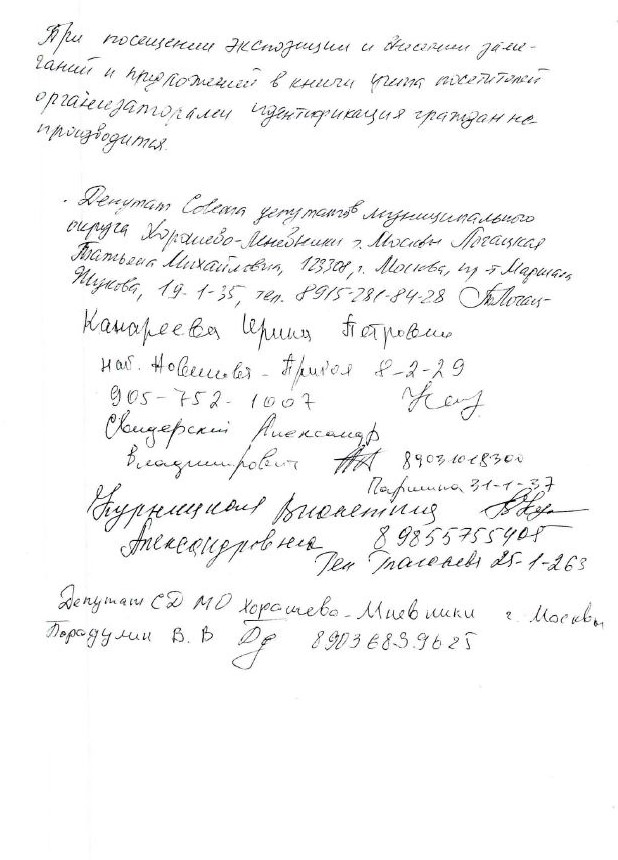 При посещении экспозиции и внесении заме-
чаний и предложений в книги учета посетителей
организаторами идентификация граждан не
производится.
Депутат Совета депутатов муниципального
округа Хорошево-Мневники г. Москвы Логацкая
Татьяна Михайловна, 123308, г. Москва, пр-т Маршала
Жукова, 19-1-35, тел. 8915-281-84-28
Канареева Ирина Петровна
наб. Новикова-Прибоя 8-2-29
905-752-1007
Свидерский Александр
Владимирович 89031018300
Паршина 31-1-37
Курницкая Виолетта
Александровна 89855755405
Ген Глаголева 25-1-263
Депутат СД МО Хорошево-Мневники г. Москвы
В. В 8903 683 9625